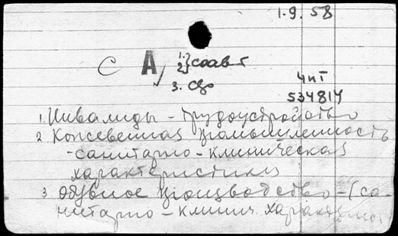 1.9.58
С А 1. 2.} соавт
3. сво
Чит
534814
1. Инвалиды - трудоустройство
2 Кожевенная промышленность
- санитарно - клиническая
характеристика
3 Обувное производство - (са-
нитарно - клинич. характ